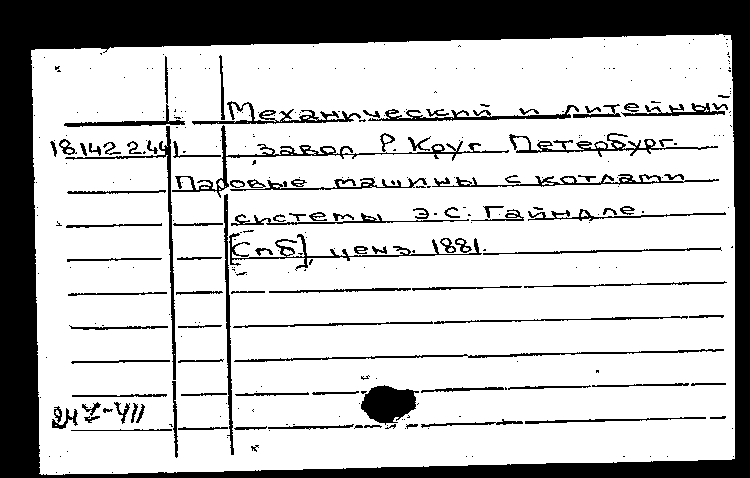 Механический и литейный
18.142.2.441. завод Р. Круг Петербург.
Паровые машины с котлами
системы Э.С. Гайндле.
[Спб], ценз. 1881.